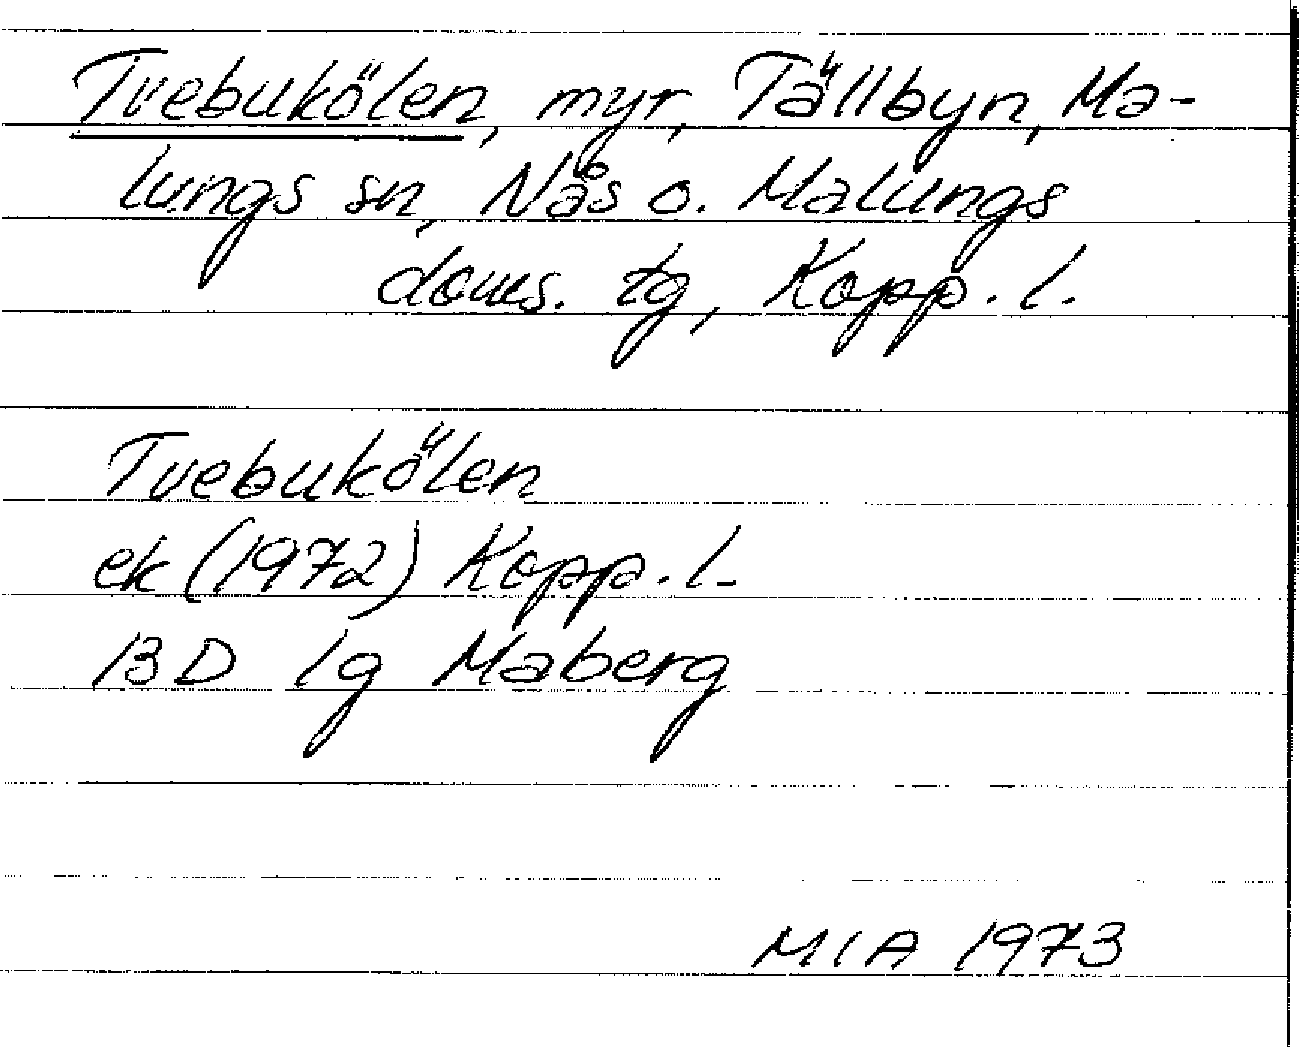 Tvebukölen, myr, Tällbyn, Ma-
lungs sn, Nås o. Malungs
doms. tg, Kopp. l.
Tvebukölen
ek (1972) Kopp. l.
13 D lg Maberg
MIA 1973